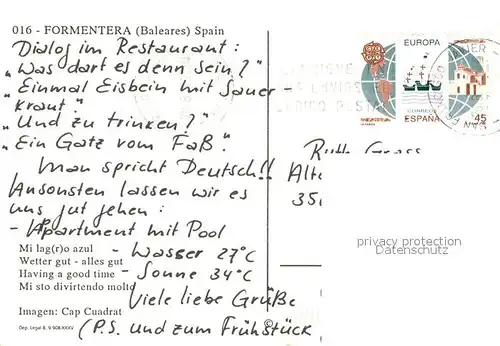 016 - FORMENTERA (Baleares) Spain
Dialog im Restaurant:
"Was darf es denn sein?"
"Einmal Eisbein mit Sauer-
kraut"
"Und zu trinken?"
"Ein Gatz vom Faß"
Man spricht Deutsch!!
Ansonsten lassen wir es
uns gut gehen:
- Apartment mit Pool
- Wasser 27°C
- Sonne 34°C
Viele liebe Grüße
(P.S. und zum Frühstück
Mi lag(r)o azul
Wetter gut - alles gut
Having a good time
Mi sto divirtendo molto
Imagen: Cap Cuadrat
Dep. Legal B. 9.908-XXXV
EUROPA
CORREOS
ESPAÑA
45
privacy protection
Datenschutz